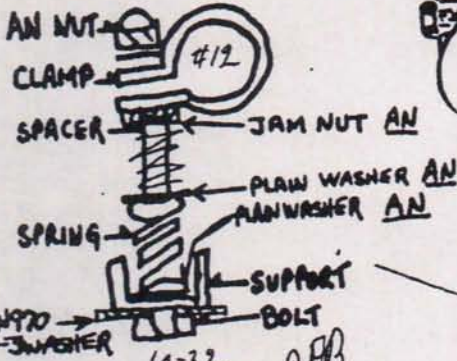 AN NUT
CLAMP
#12
SPACER
JAM NUT AN
PLAIN WASHER AN
PLANWASHER AN
SPRING
SUPPORT
BOLT
WASHER